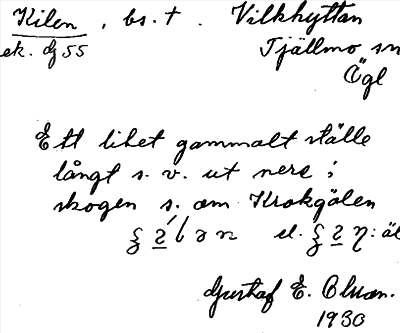 Kilen, bs. t. Vilkhyttan
ek. dj 55 Tjällmo sn
Ögl
Ett litet gammalt ställe
långt s. v. ut nere i
skogen s. om Krokgölen
el.
Gustaf E.
1930